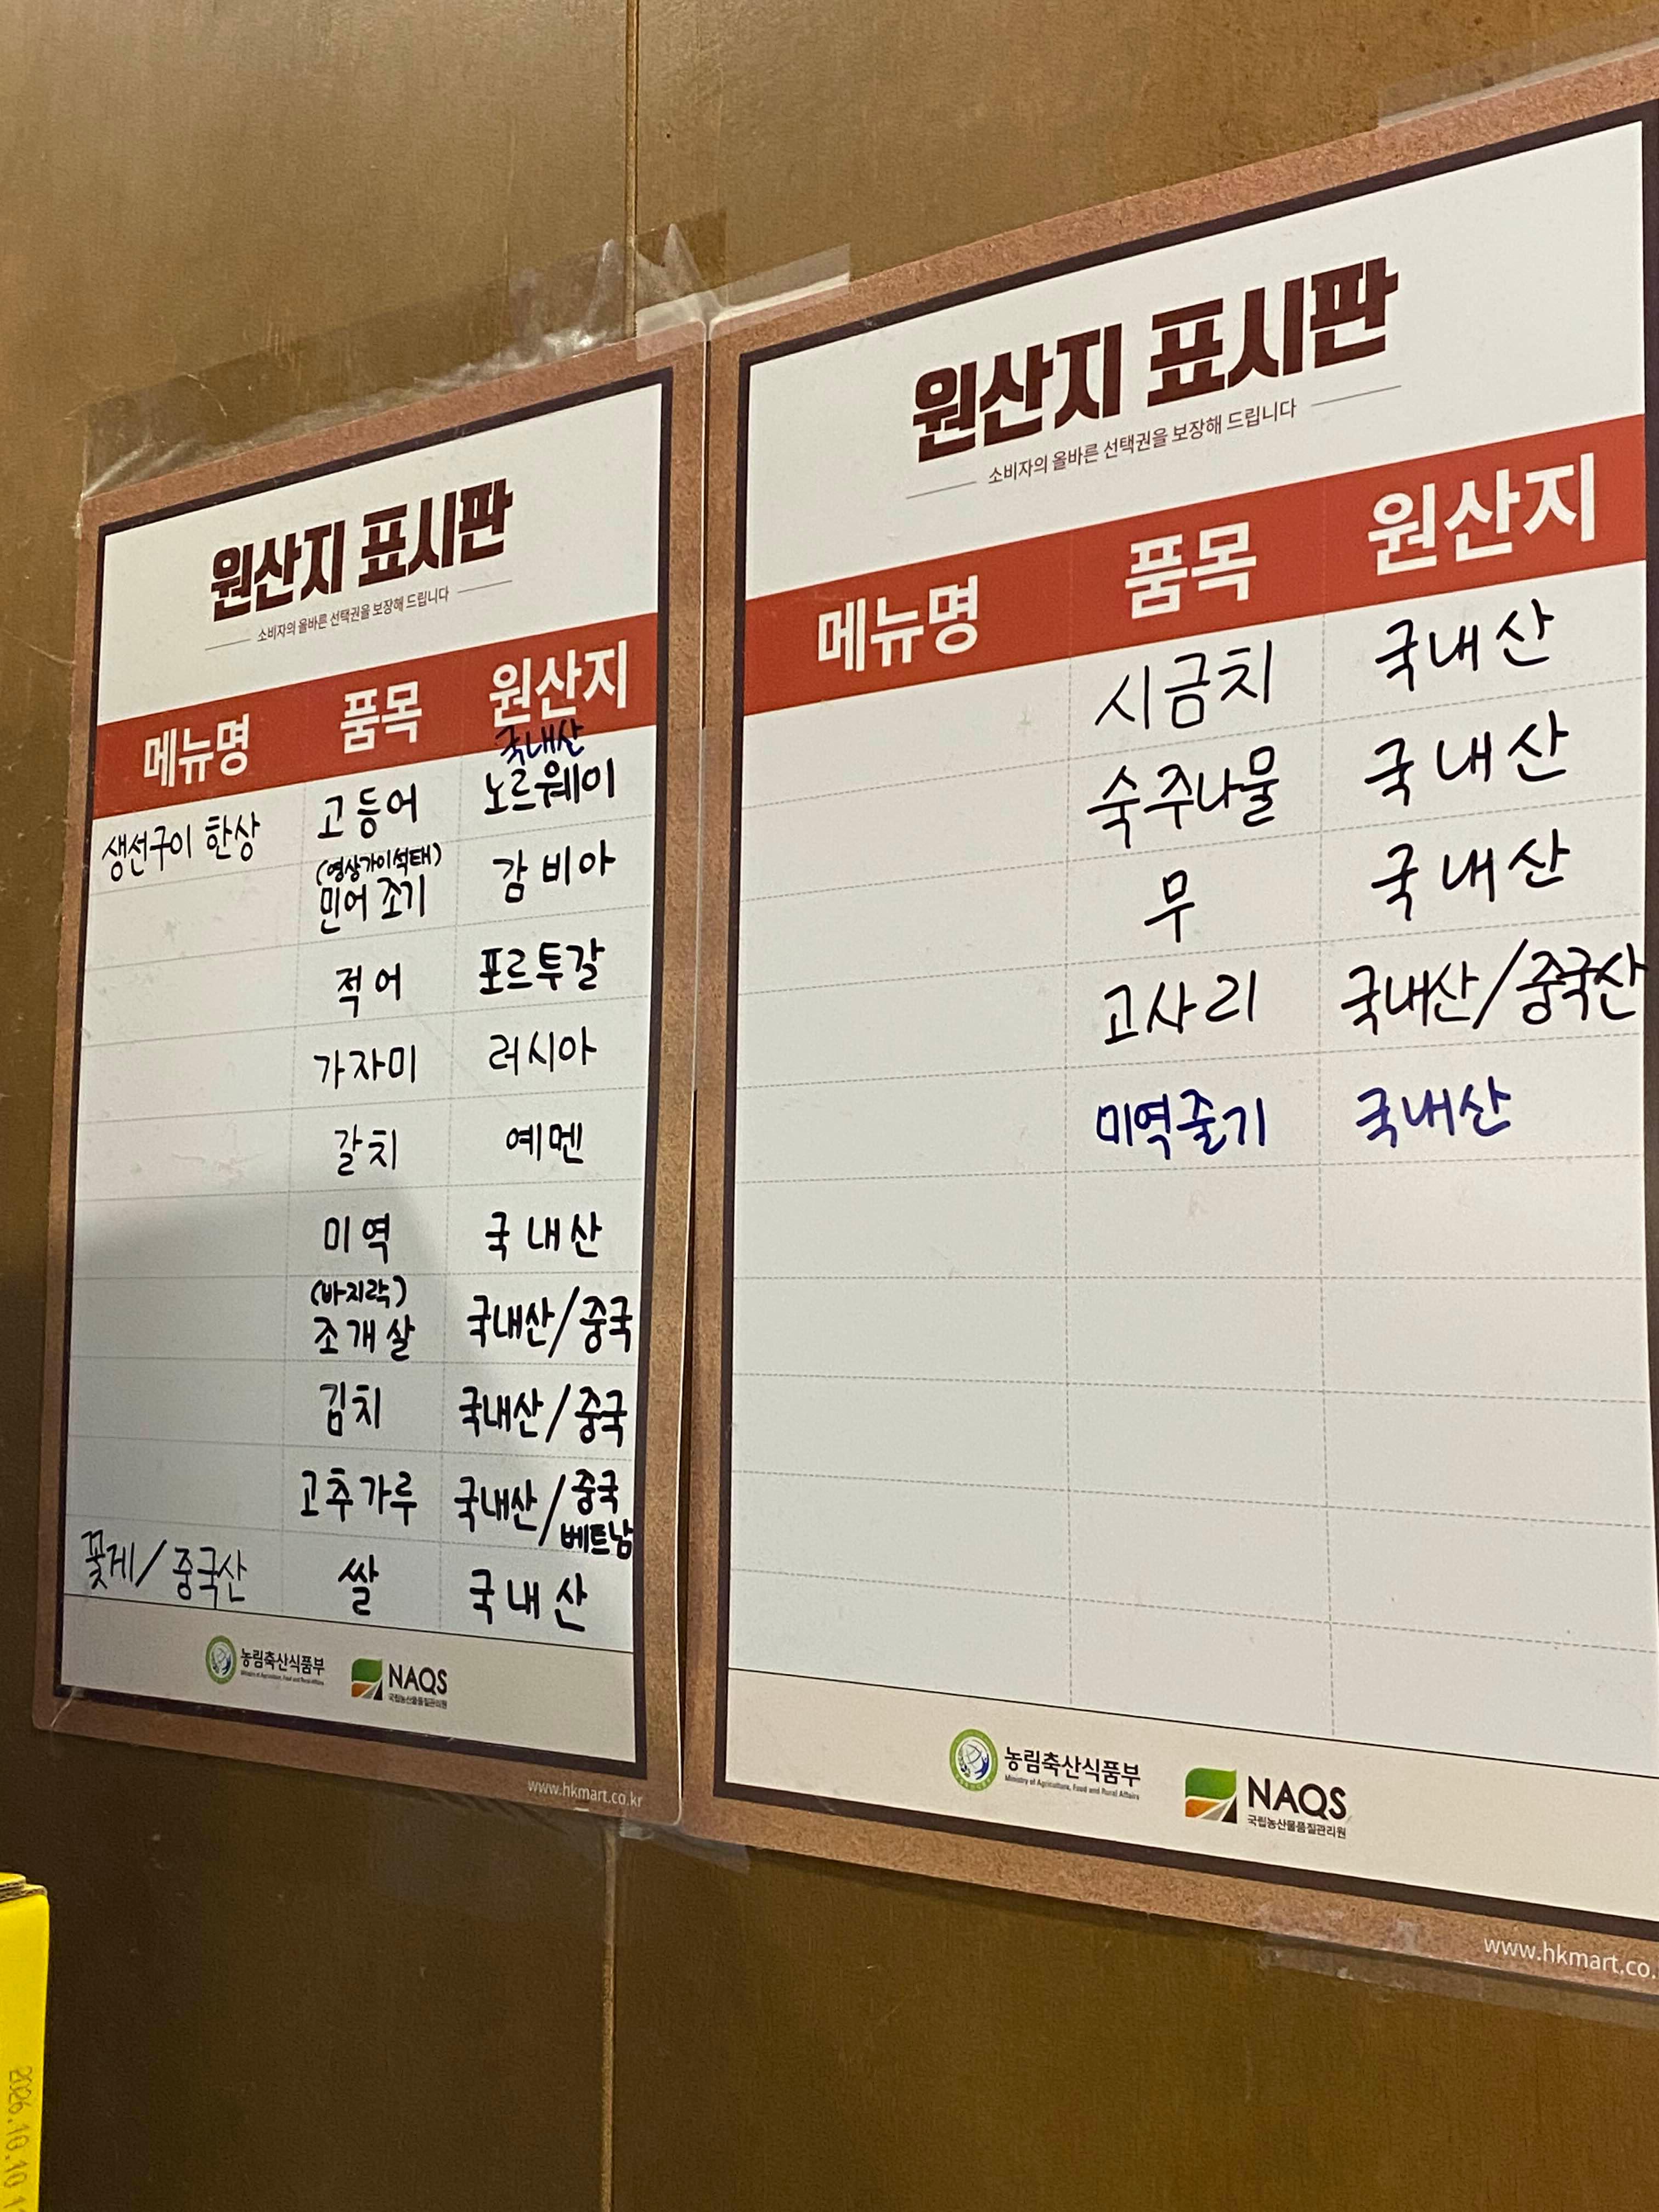 원산지 표시판
소비자의 올바른 선택권을 보장해 드립니다
메뉴명 품목 원산지
국내산
생선구이 한상 고등어 노르웨이
(영상가이석태)
민어 조기 감비아
적어 포르투갈
가자미 러시아
갈치 예멘
미역 국내산
(바지락)
조개살 국내산/중국
김치 국내산/중국
고추가루 국내산/중국
베트남
꽃게/중국산 쌀 국내산
농림축산식품부
Ministry of Agriculture, Food and Rural Affairs
NAQS
국립농산물품질관리원
www.hkmart.co.kr
원산지 표시판
소비자의 올바른 선택권을 보장해 드립니다
메뉴명 품목 원산지
시금치 국내산
숙주나물 국내산
무 국내산
고사리 국내산/중국산
미역줄기 국내산
농림축산식품부
Ministry of Agriculture, Food and Rural Affairs
NAQS
국립농산물품질관리원
www.hkmart.co.
2026.10.10